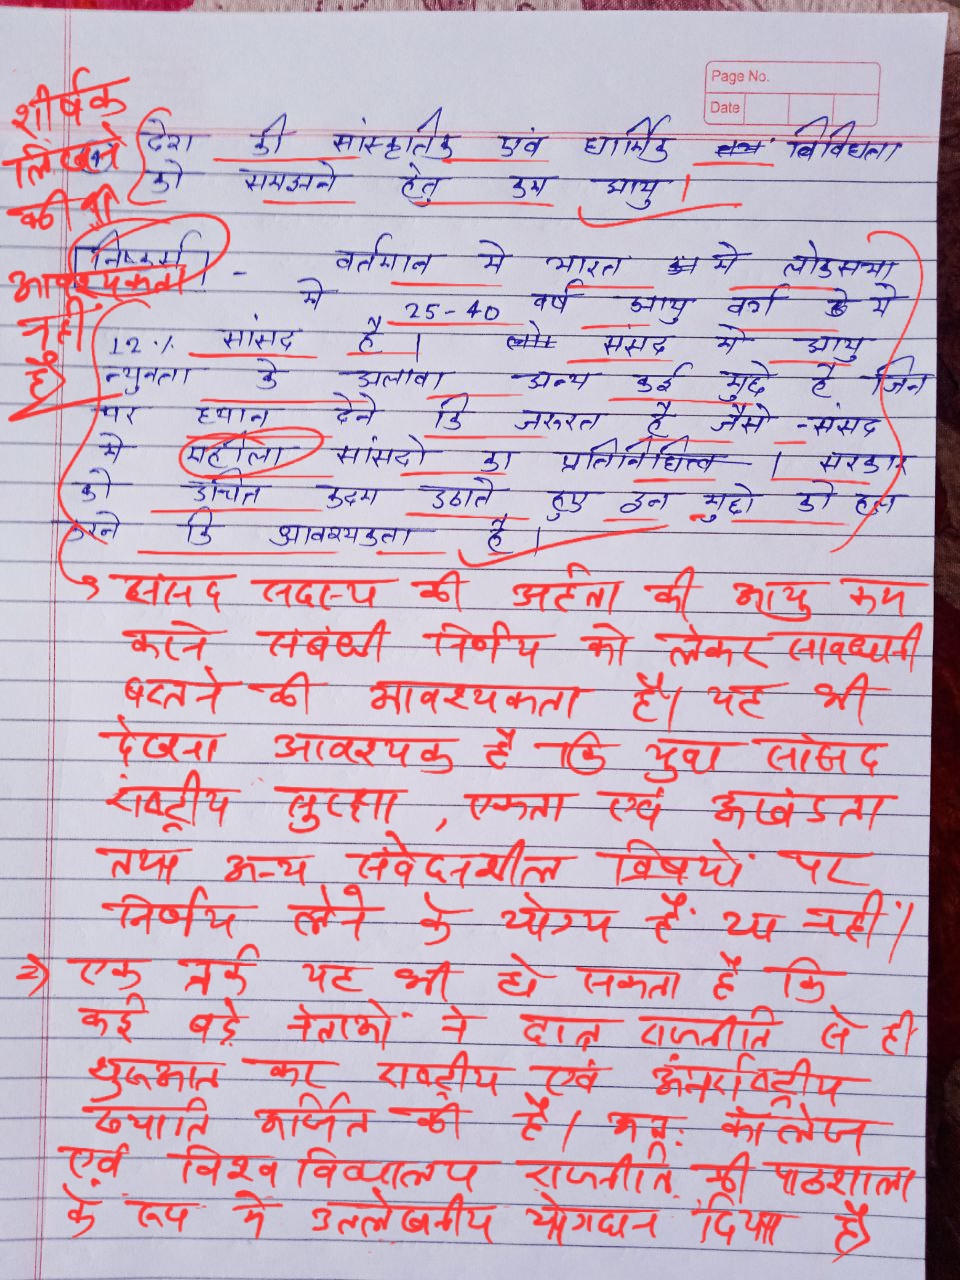 Page No.
Date
शीर्षक
लिखने
की भी
आवश्यकता
नहीं
है
देश की सांस्कृतिक एवं धार्मिक विविधता
को समझने हेतु कम आयु।
निष्कर्ष - वर्तमान मे भारत मे लोकसभा
मे 25-40 वर्ष आयु वर्ग के ये
12.% सांसद है। संसद मे आयु
न्युनता के अलावा अन्य कई मुद्दे है जिन
पर ध्यान देने कि जरूरत है जैसे - संसद
मे महीला सांसदो का प्रतिनिधित्व। सरकार
को उचित कदम उठाते हुए इन मुद्दो को हल
करने कि आवश्यकता है।
→ सांसद सदस्य की अर्हता की आयु कम
करने संबंधी निर्णय को लेकर सावधानी
बरतने की आवश्यकता है। यह भी
देखना आवश्यक है कि युवा सांसद
राष्ट्रीय सुरक्षा, एकता एवं अखंडता
तथा अन्य संवेदनशील विषयों पर
निर्णय लेने के योग्य हैं या नहीं।
2) एक तर्क यह भी हो सकता है कि
कई बड़े नेताओं ने छात्र राजनीति से ही
शुरूआत कर राष्ट्रीय एवं अंतर्राष्ट्रीय
ख्याति अर्जित की है। अत: कॉलेज
एवं विश्वविद्यालय राजनीति की पाठशाला
के रूप मे उल्लेखनीय योगदान दिया है